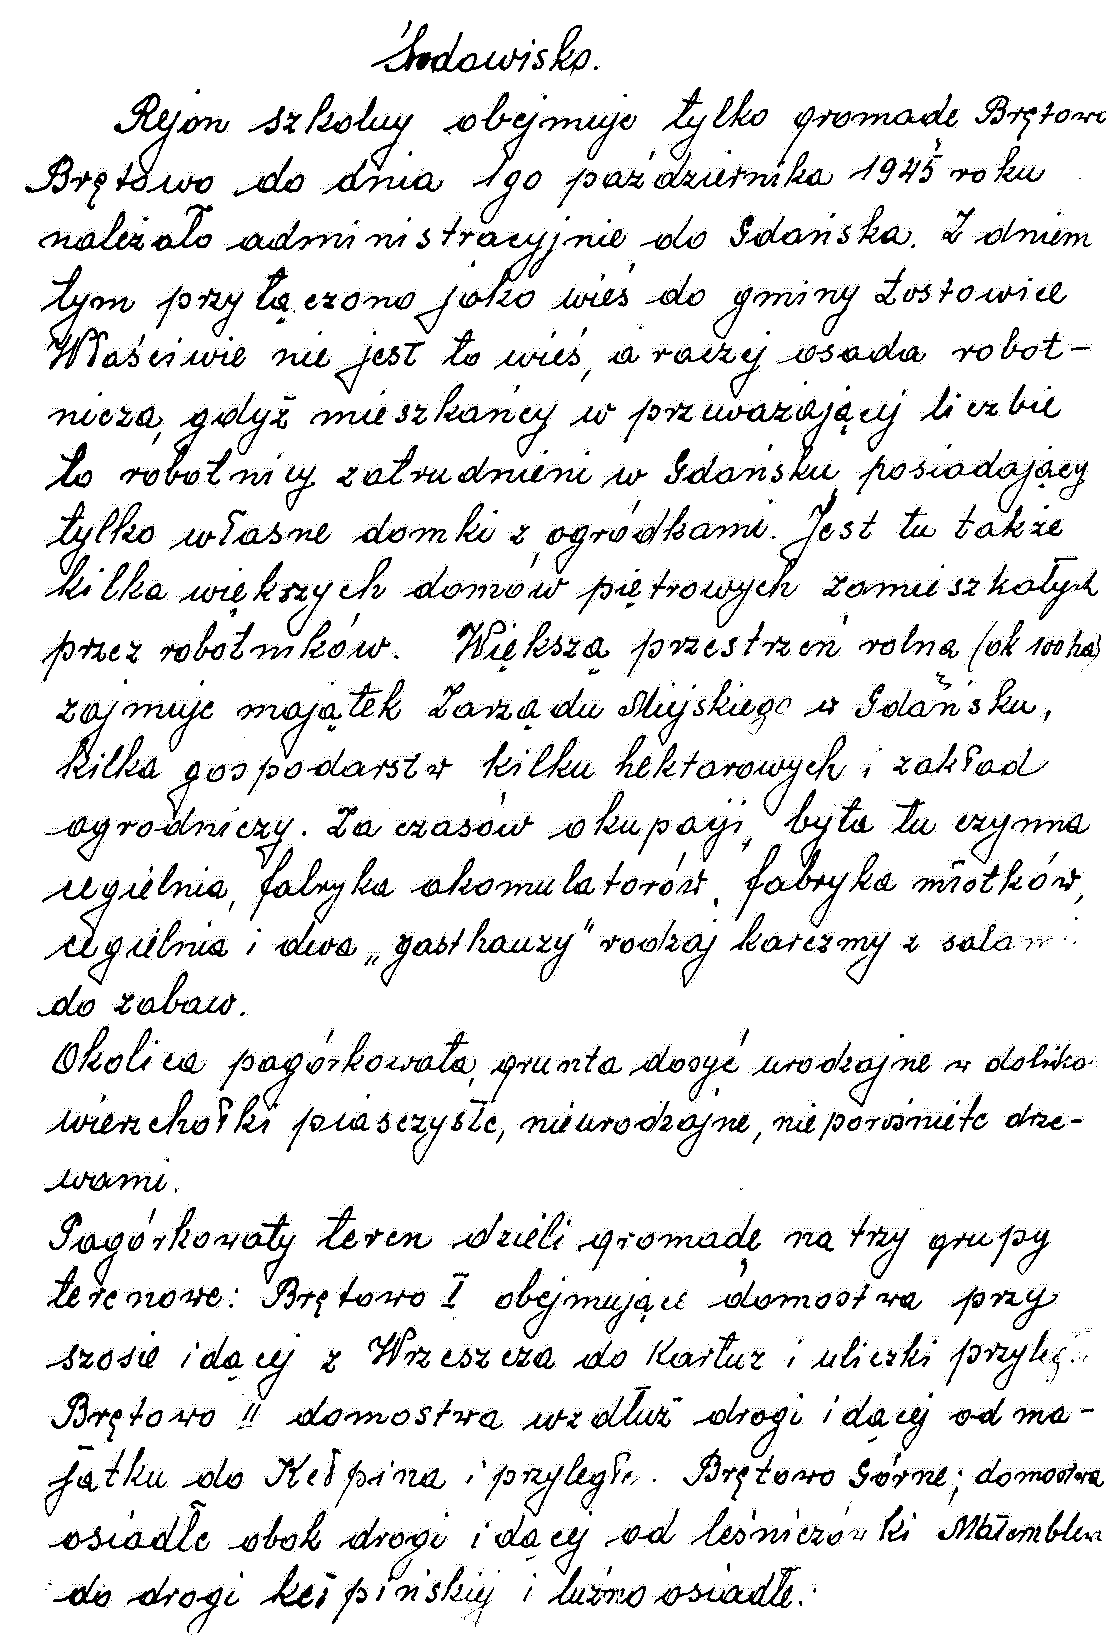 Środowisko.
Rejon szkolny obejmuje tylko gromadę Brętowo
Brętowo do dnia 1go października 1945 roku
należało administracyjnie do Gdańska. Z dniem
tym przyłączono jako wieś do gminy Łostowice
Właściwie nie jest to wieś, a raczej osada robot-
nicza, gdyż mieszkańcy w przeważającej liczbie
to robotnicy zatrudnieni w Gdańsku, posiadający
tylko własne domki z ogródkami. Jest tu także
kilka większych domów piętrowych zamieszkałych
przez robotników. Większą przestrzeń rolną (ok 100 ha)
zajmuje majątek Zarządu Miejskiego w Gdańsku,
kilka gospodarstw kilku hektarowych i zakład
ogrodniczy. Za czasów okupacji, była tu czynna
cegielnia, fabryka akomulatorów, fabryka młotków,
cegielnia i dwa „gasthauzy" rodzaj karczmy z salami
do zabaw.
Okolica pagórkowata, grunta dosyć urodzajne w
wierzchołki piaszczyste, nieurodzajne, nieporośnięte drze-
wami.
Pagórkowaty teren dzieli gromadę na trzy grupy
terenowe: Brętowo I obejmujące domostwa przy
szosie idącej z Wrzeszcza do Kartuz i uliczki
Brętowo II domostwa wzdłuż drogi idącej od ma-
jątku do Kełpina i przyległe. Brętowo Górne; domostwa
osiadłe obok drogi idącej od leśniczówki Matemblewo
do drogi kełpińskiej i luźno osiadłe.